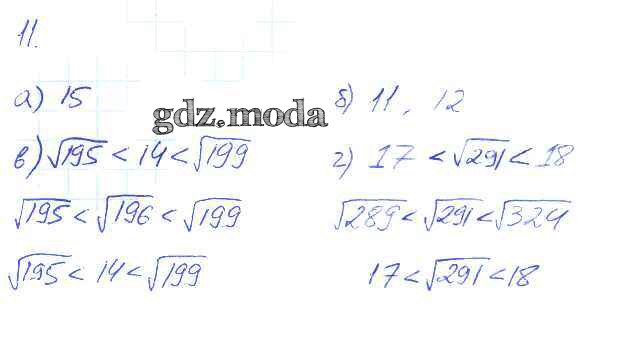 11.
а) 15
б) 11, 12
gdz.moda
в) √195 < 14 < √199
г) 17 < √291 < 18
√195 < √196 < √199
√289 < √291 < √324
√195 < 14 < √199
17 < √291 < 18